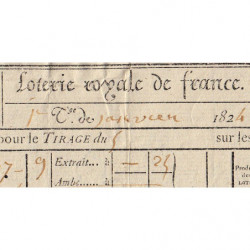 Loterie royale de france.
1er Tge. de janvier 1824
pour le TIRAGE du 5 sur les
7 - 9 Extrait... à — 25
Ambe... à